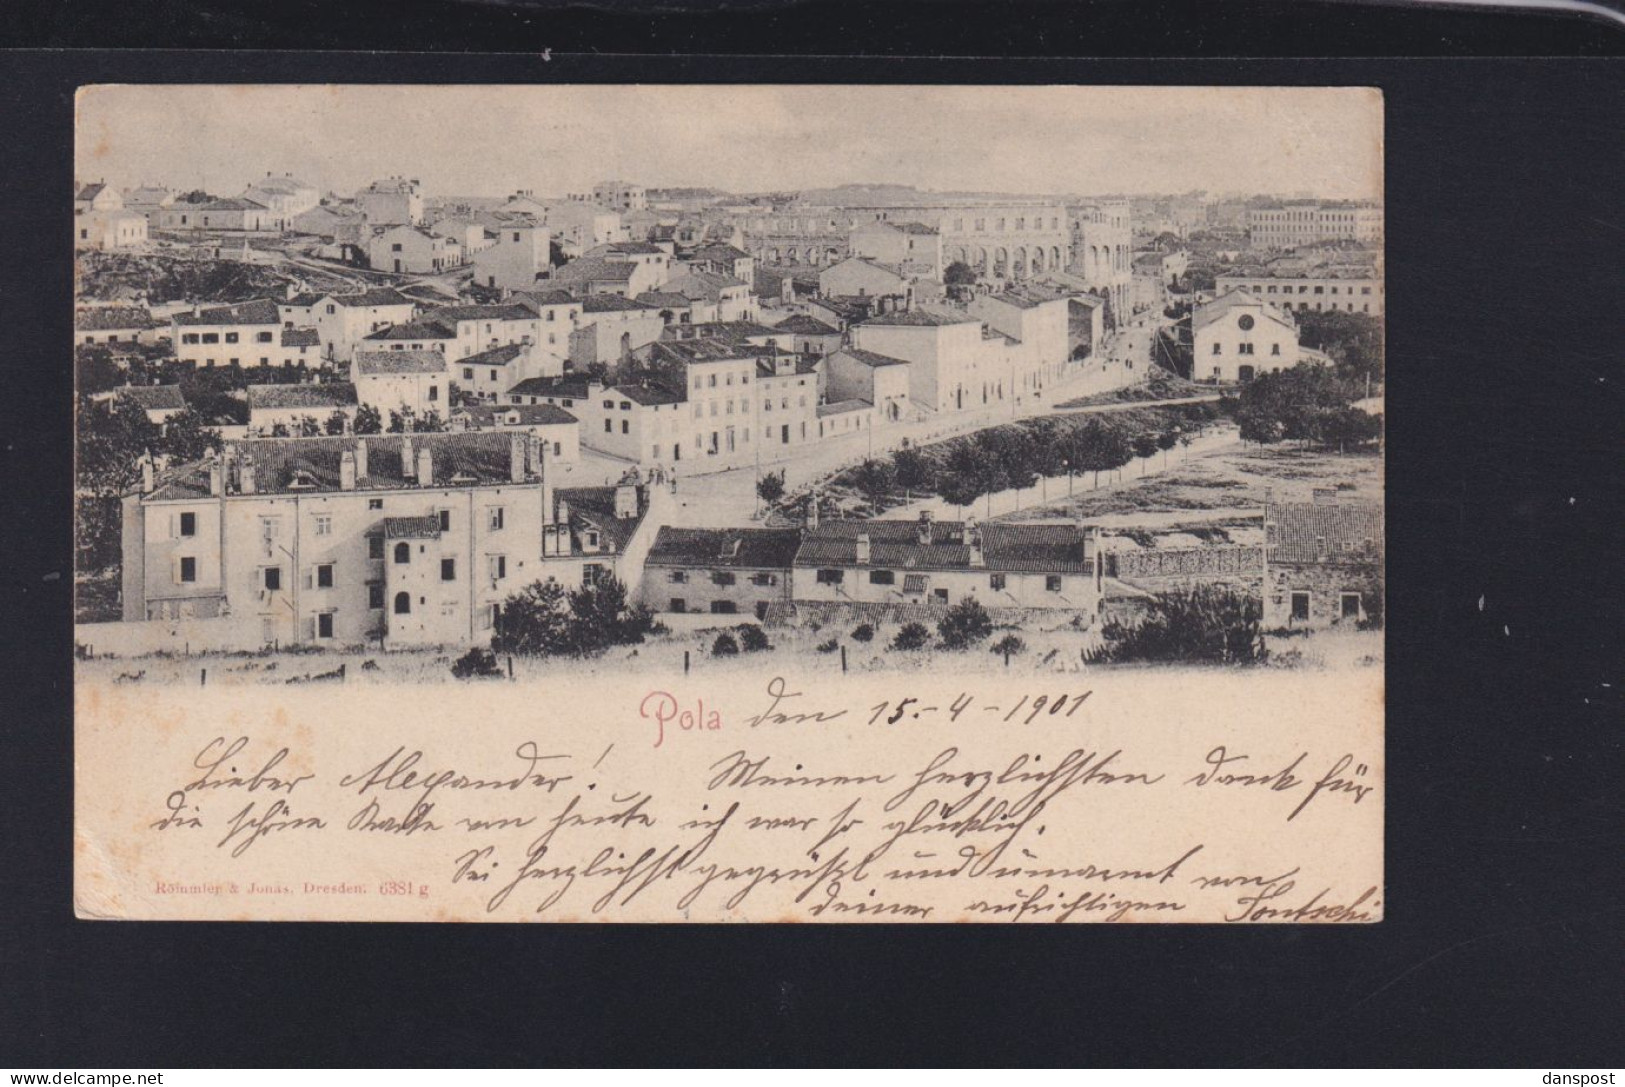 Pola den 15.-4-1901
Lieber Alexander! Meinen herzlichsten Dank für
die schöne Karte von heute ich war so glücklich.
Sei herzlichst gegrüßt und umarmt von
Römmler & Jonas, Dresden. 6381 g
deiner aufrichtigen
hippostcard.com
danspost